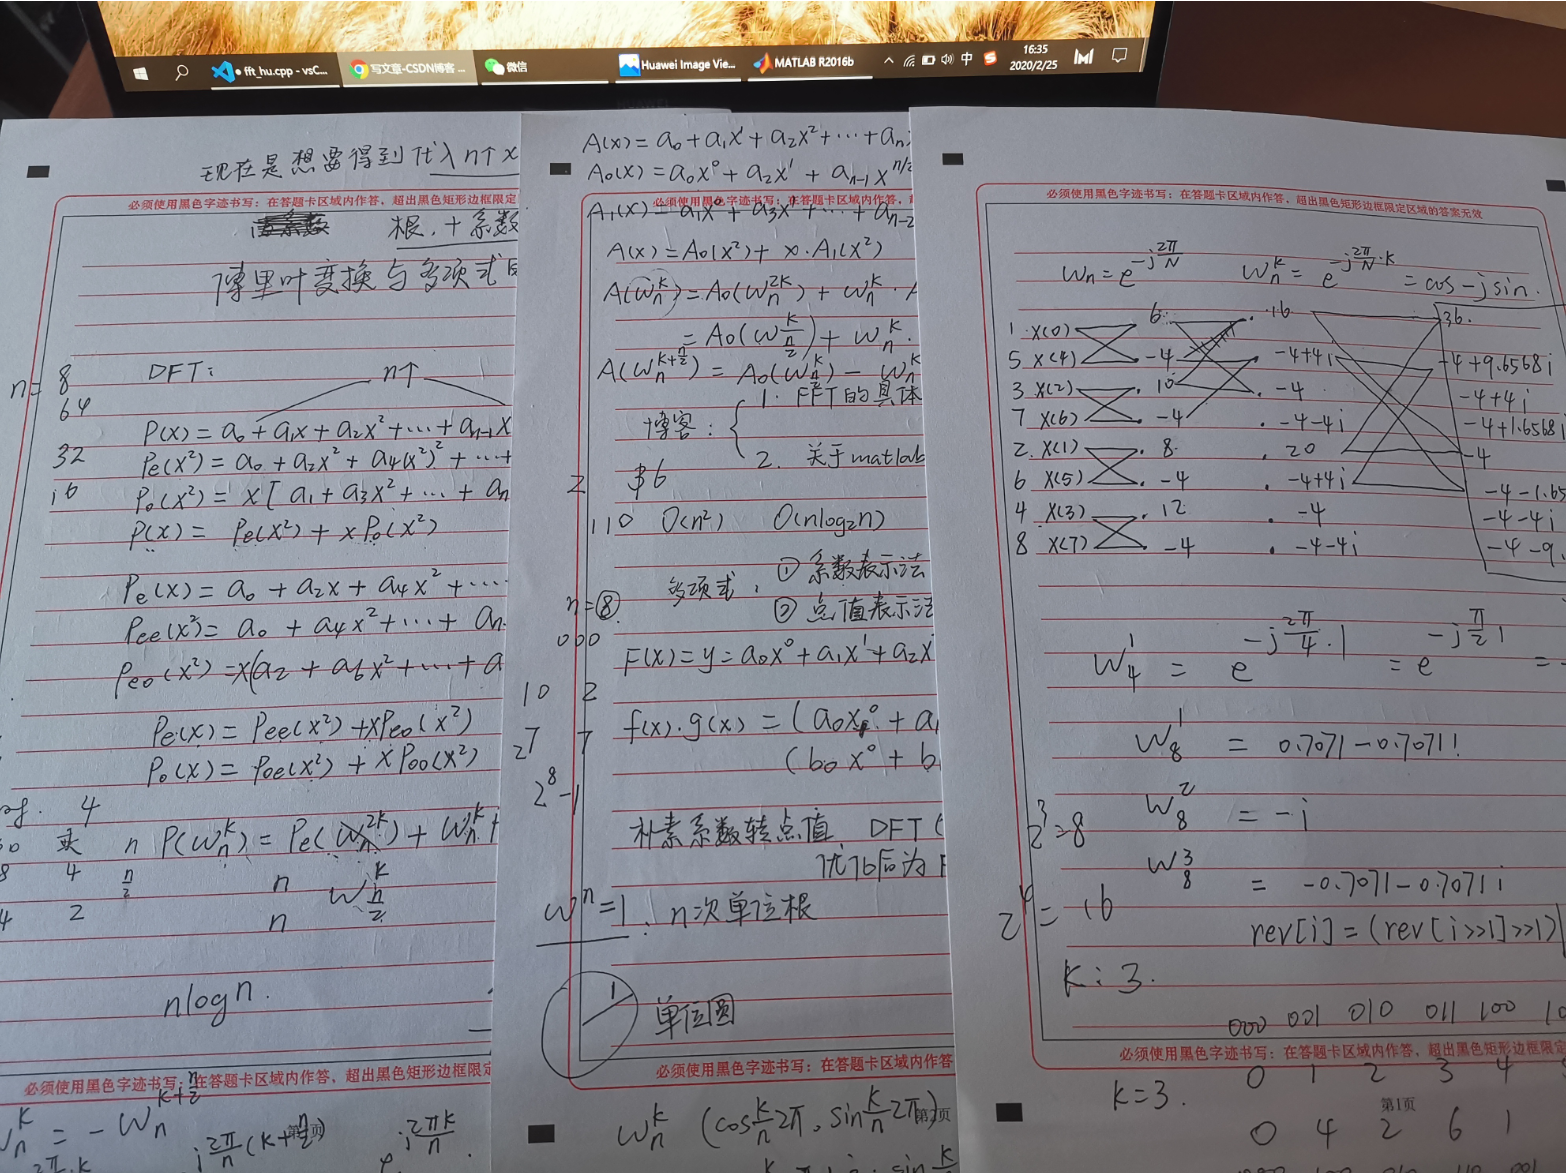 fft_hu.cpp - vsC...
写文章-CSDN博客 ...
微信
Huawei Image Vie...
MATLAB R2016b
中
16:35
2020/2/25
现在是想要得到代入n个x
必须使用黑色字迹书写：在答题卡区域内作答，超出黑色矩形边框限定
根.十系数
傅里叶变换与多项式
DFT:
n个
n= 8
64
P(x) = a₀ + a₁x + a₂x² + ⋯ + aₙ₋₁x
32 Pe(x²) = a₀ + a₂x² + a₄(x²)² + ⋯ +
16 Po(x²) = x[a₁ + a₃x² + ⋯ + an
P(x) = Pe(x²) + xPo(x²)
Pe(x) = a₀ + a₂x + a₄x² + ⋯
Pee(x²) = a₀ + a₄x² + ⋯ + an
Peo(x²) = x(a₂ + a₆x² + ⋯ + a
Pe(x) = Pee(x²) + xPeo(x²)
Po(x) = Poe(x²) + xPoo(x²)
4
n P(wₙᵏ) = Pe(wₙ²ᵏ) + wₙᵏ
8 4 n/2 n w_{n/2}^k
4 2 n
nlogn.
必须使用黑色字迹书写：在答题卡区域内作答，超出黑色矩形边框限定
wₙᵏ = -wₙ^{k+n/2}
j 2π/n (k+n/2)
j 2πk/n
A(x) = a₀ + a₁x¹ + a₂x² + ⋯ + an
A₀(x) = a₀x⁰ + a₂x¹ + aₙ₋₁x^{n/2
A₁(x) = a₁x⁰ + a₃x¹ + ⋯ + aₙ₋₂
A(x) = A₀(x²) + x·A₁(x²)
A(wₙᵏ) = A₀(wₙ²ᵏ) + wₙᵏ ·
= A₀(w_{n/2}^k) + wₙᵏ·
A(wₙ^{k+n/2}) = A₀(w_{n/2}^k) - wₙᵏ
博客: { 1. FFT的具体
2. 关于matlab
2 $6
110 O(n²) O(nlog₂n)
多项式: ① 系数表示法
n=⑧. ② 点值表示法
000
F(x) = y = a₀x⁰ + a₁x¹ + a₂x
10 2
f(x)·g(x) = (a₀x⁰ + a₁
27 7
(b₀x⁰ + b
2⁸-1
朴素系数转点值 DFT (
优化后为 F
wⁿ=1. n次单位根
1
单位圆
必须使用黑色字迹书写：在答题卡区域内作答
wₙᵏ (cos k/n 2π, sin k/n 2π)
必须使用黑色字迹书写：在答题卡区域内作答，超出黑色矩形边框限定区域的答案无效
wₙ = e^{-j 2π/N} wₙᵏ = e^{-j 2π/N ·k} = cos - j sin.
1 x(0) 6 16 36.
5 x(4) -4 -4+4i -4+9.6568i
3 x(2) 10 -4 -4+4i
7 x(6) -4 -4-4i -4+1.6568i
2 x(1) 8 20 -4
6 x(5) -4 -4+4i -4-1.65
4 x(3) 12 -4 -4-4i
8 x(7) -4 -4-4i -4-9.
w₄¹ = e^{-j 2π/4 ·1} = e^{-j π/2 1} =
w₈¹ = 0.7071-0.7071i
w₈² = -i
2³=8
w₈³ = -0.7071-0.7071i
2⁴=16
rev[i] = (rev[i>>1]>>1)|
k: 3.
000 001 010 011 100 10
必须使用黑色字迹书写：在答题卡区域内作答，超出黑色矩形边框限定
0 1 2 3 4
k=3.
第1页
0 4 2 6 1